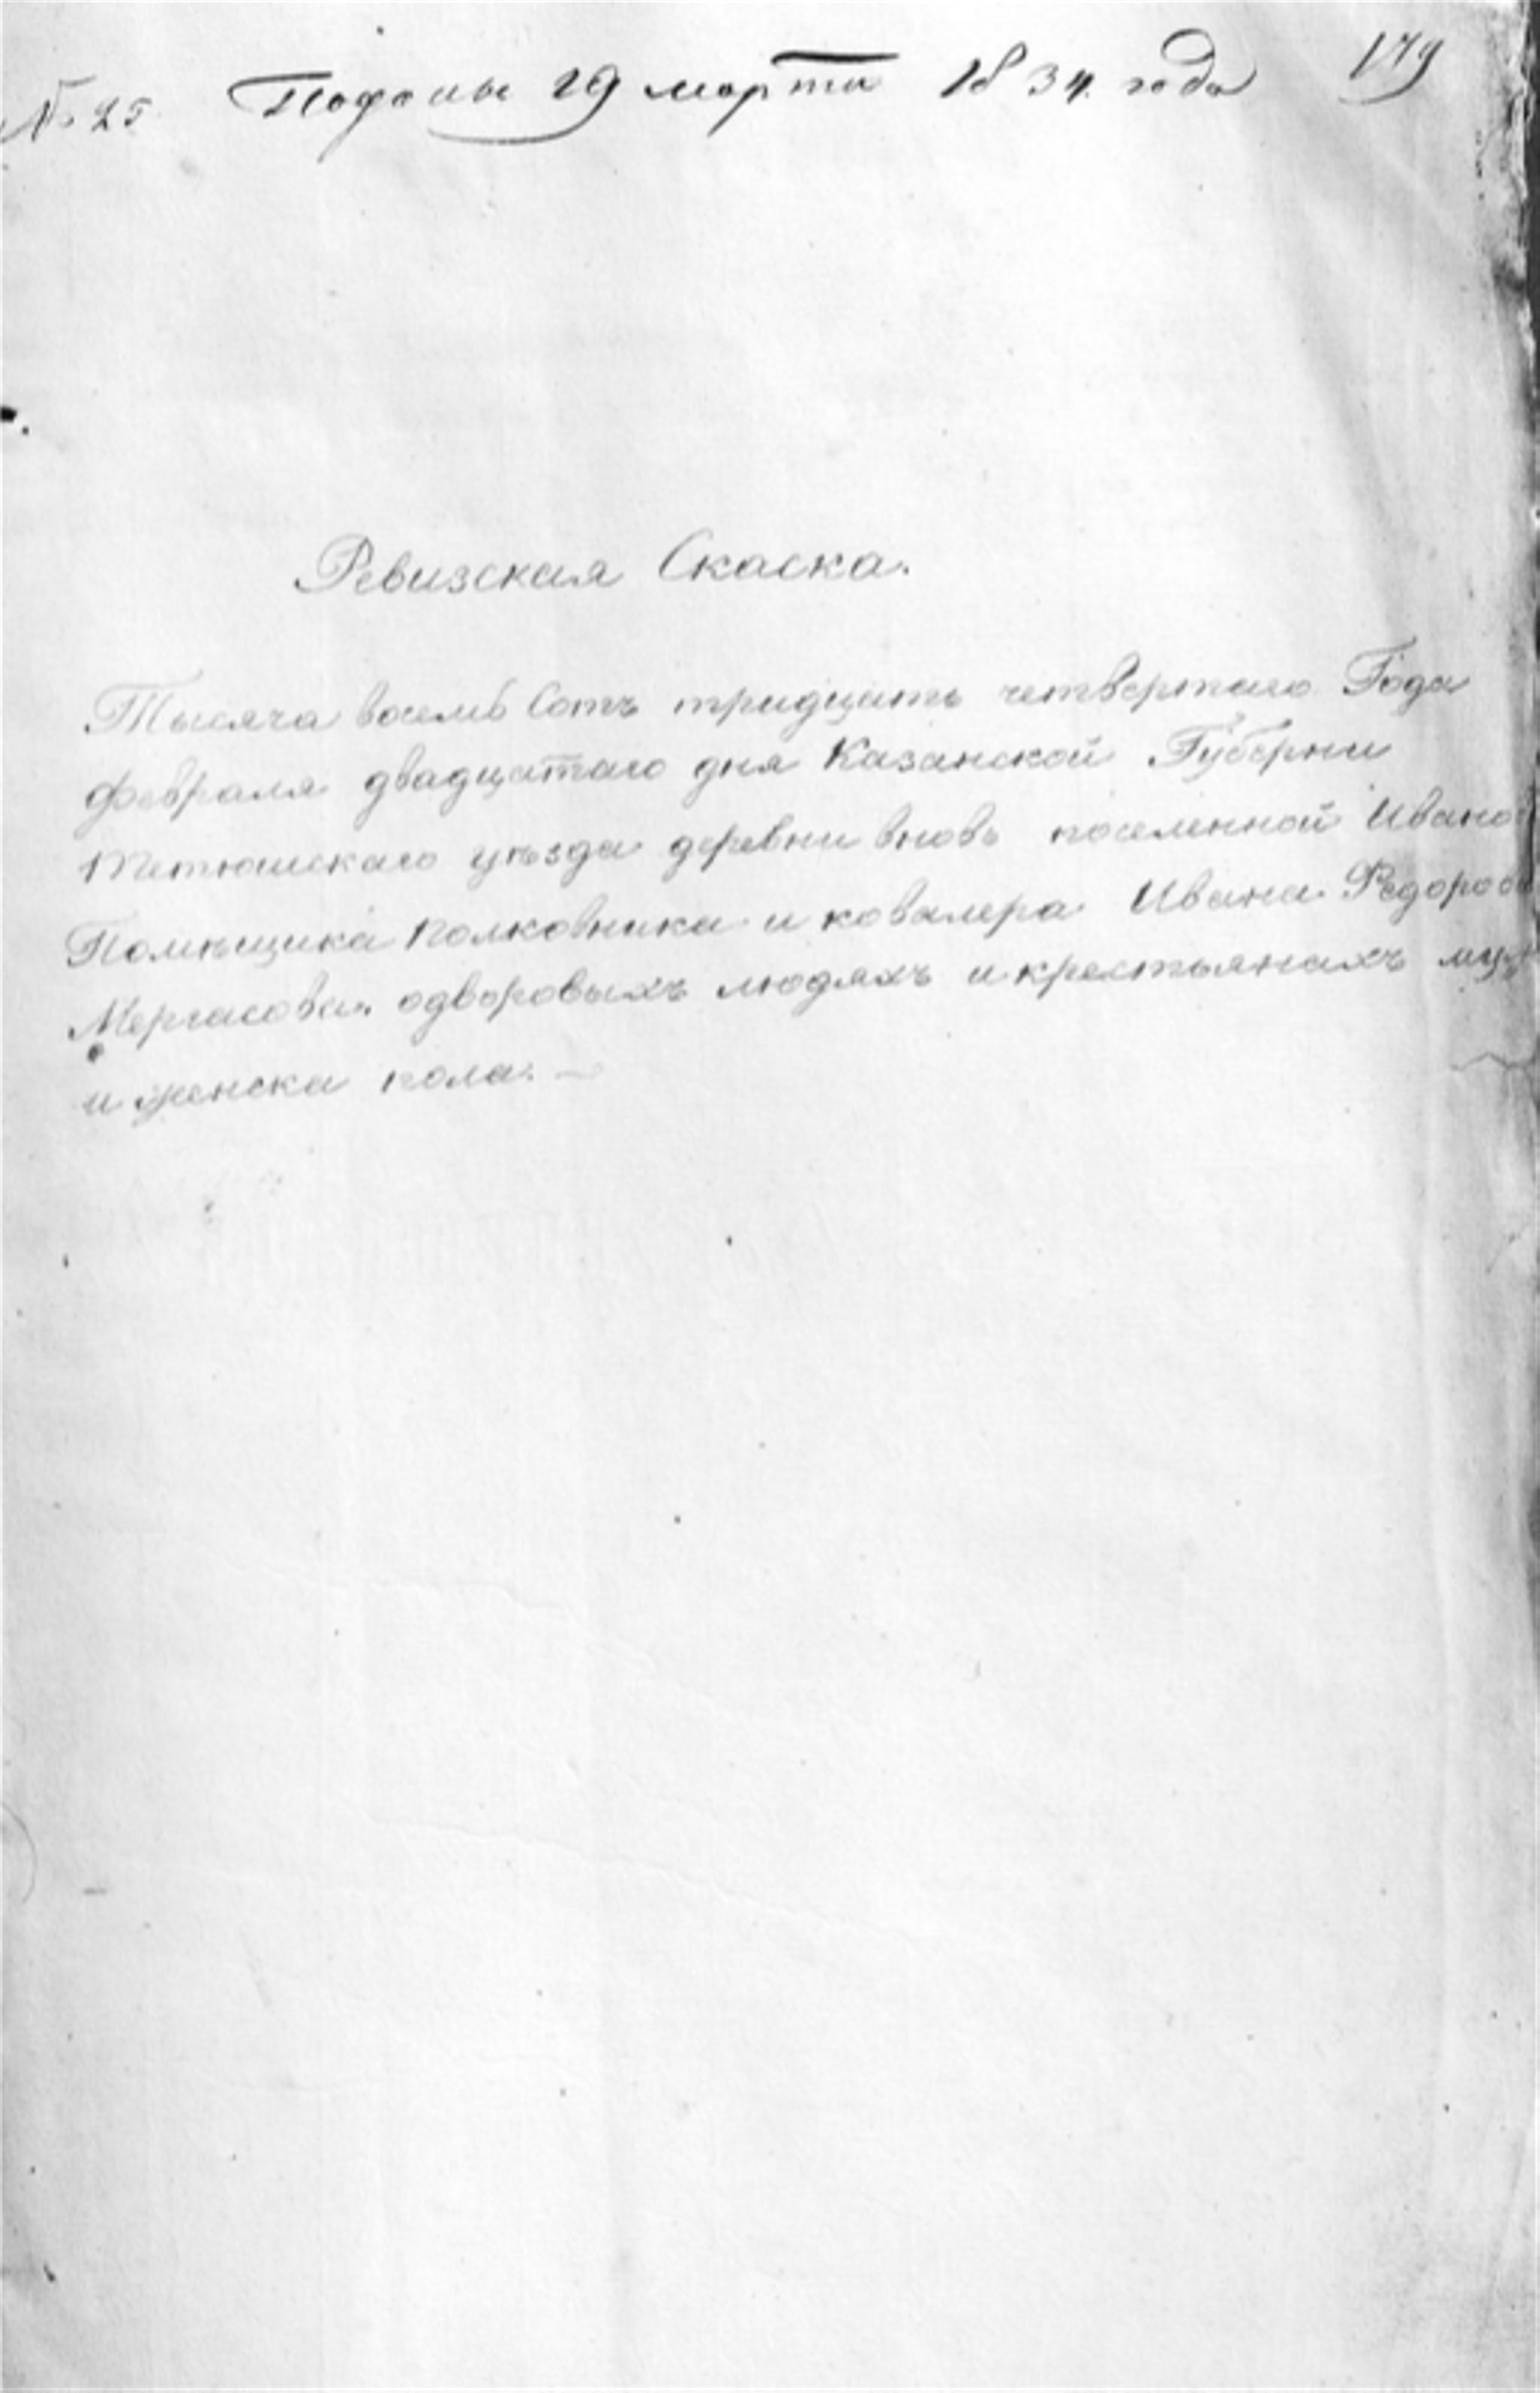 № 25 Поданы 29 марта 1834 года 179
Ревизская Скаска.
Тысяча восемь Сотъ тридцать четвертаго Года
февраля двадцатаго дня Казанской Губерни
Тетюшскаго уѣзда деревни вновь поселенной
Помѣщика полковника и ковалера Ивана
Мергасова. одворовыхъ людяхъ и крестьянахъ
и женска пола. —